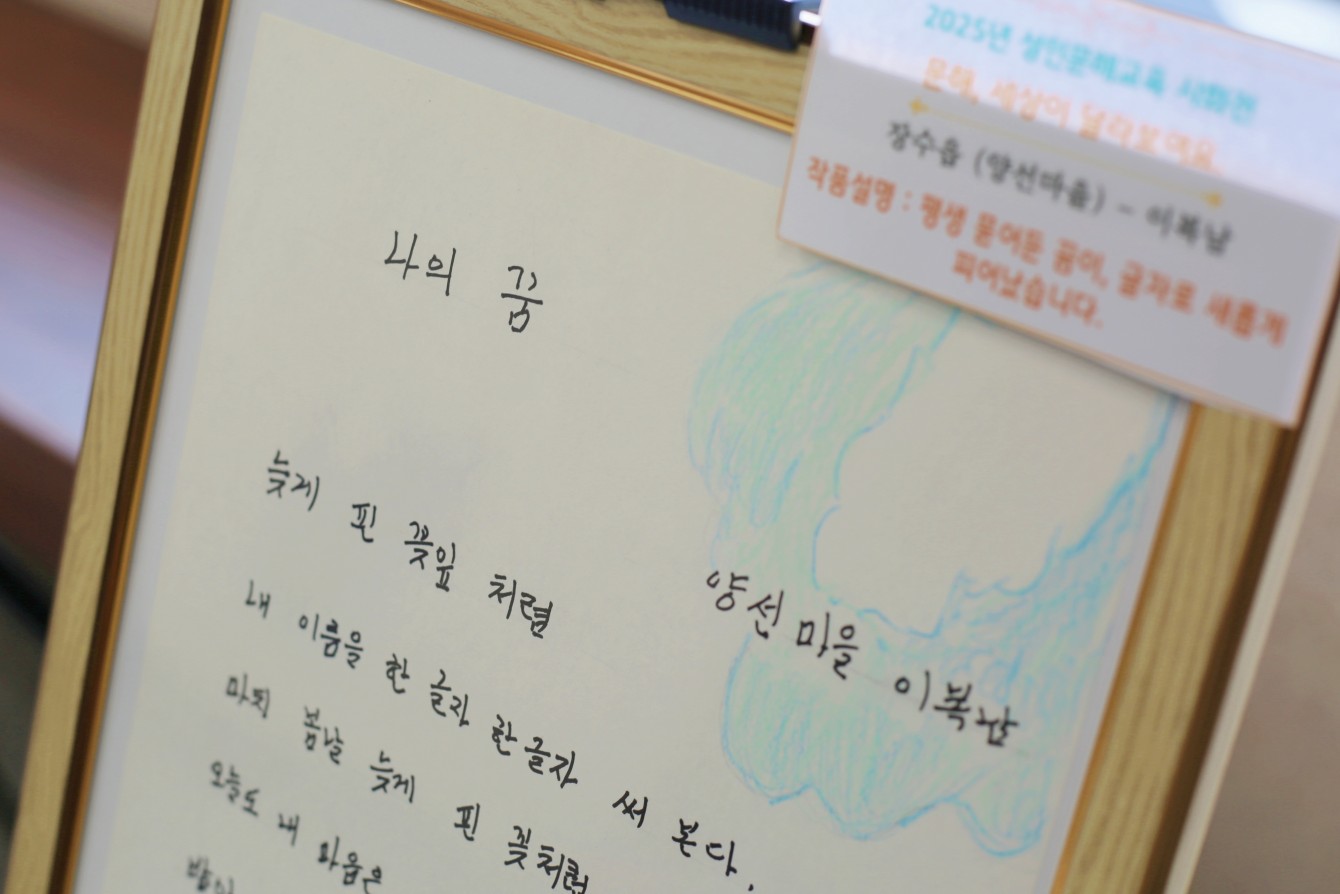 2025년 성인문해교육 시화전
문해, 세상이 달라보여요.
장수읍 (양선마을) - 이복남
작품설명 : 평생 묻어둔 꿈이, 글자로 새롭게
피어났습니다.
나의 꿈
양선 마을 이복남
늦게 핀 꽃잎 처럼
내 이름을 한 글자 한 글자 써 본다.
마치 봄날 늦게 핀 꽃처럼
오늘도 내 마음은